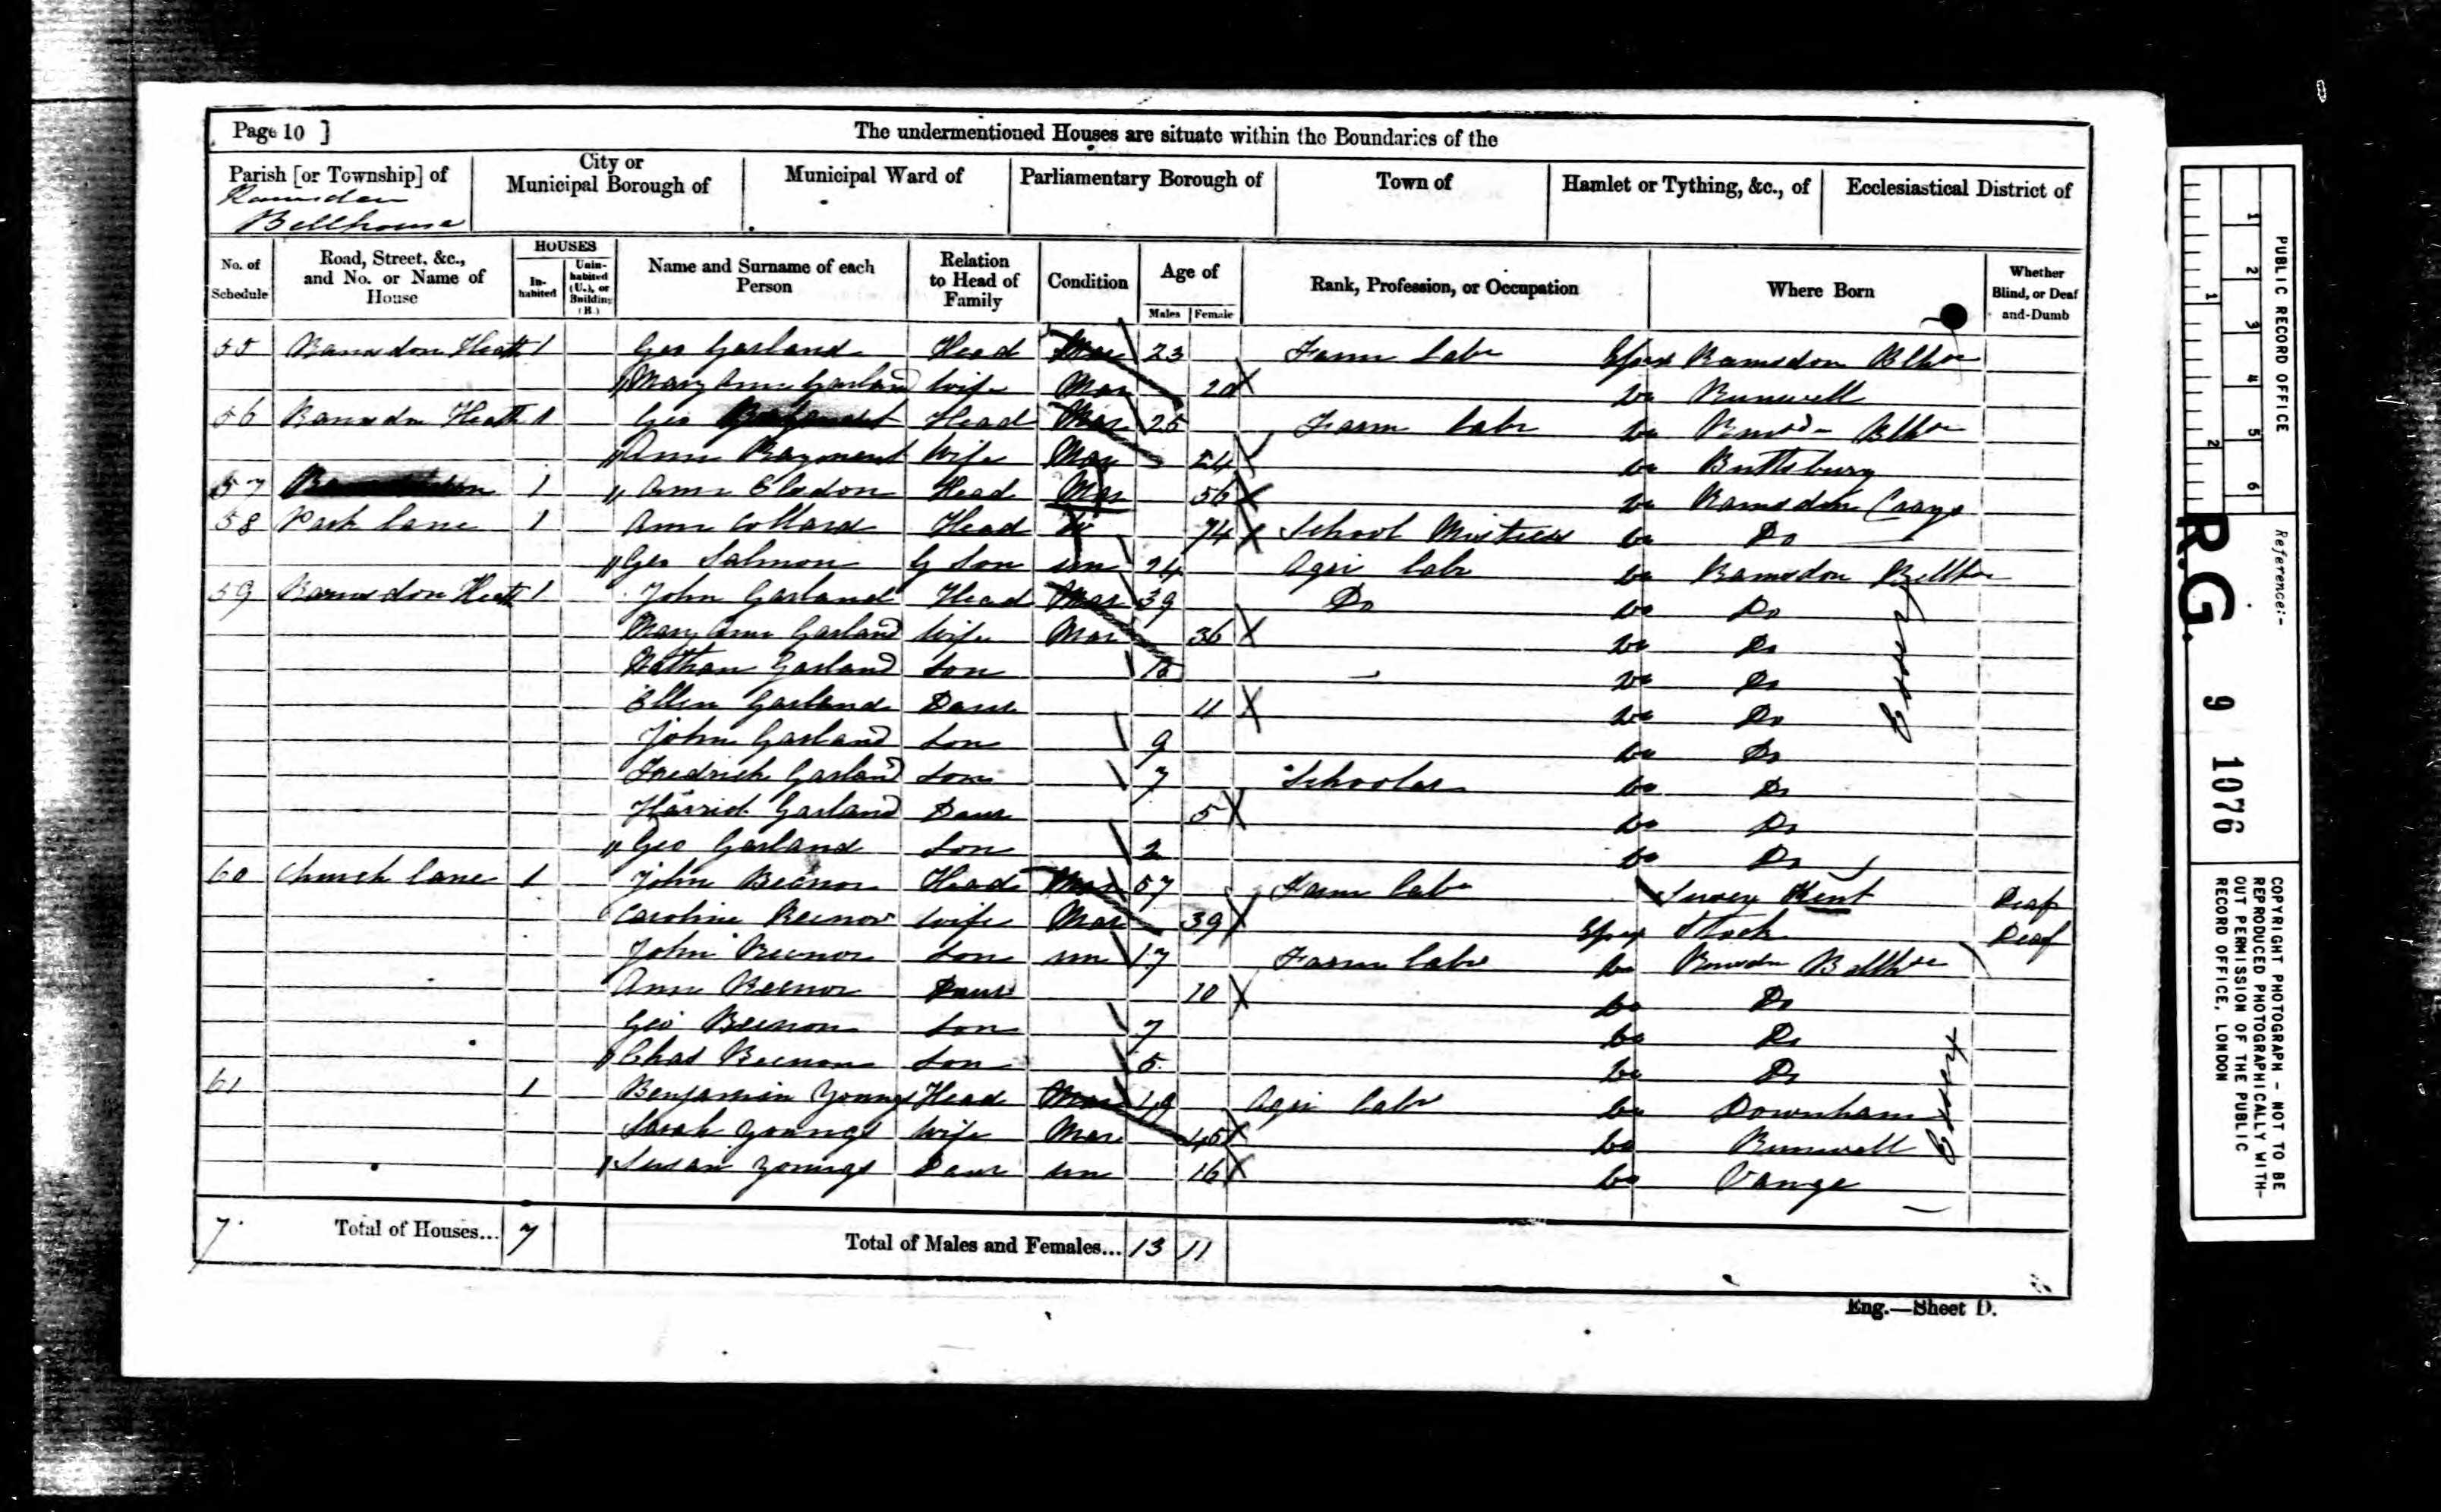 Page 10 ]
The undermentioned Houses are situate within the Boundaries of the
Parish [or Township] of
Ramsden
Bellhouse
City or
Municipal Borough of
Municipal Ward of
Parliamentary Borough of
Town of
Hamlet or Tything, &c., of
Ecclesiastical District of
No. of
Schedule
Road, Street, &c.,
and No. or Name of
House
HOUSES
In-
habited
Unin-
habited
(U.), or
Building
(B.)
Name and Surname of each
Person
Relation
to Head of
Family
Condition
Age of
Males
Female
Rank, Profession, or Occupation
Where Born
Whether
Blind, or Deaf
and-Dumb
55 Ramsdon Heath 1 Geo Garland Head Mar 23 Farm Labr Essex Ramsdon Blhse
Mary Ann Garland Wife Mar 20 Do Runwell
56 Ramsdon Heath 1 Geo Head Mar 25 Farm Labr Do Blhse
Ann Rayment Wife Mar 24 Do Buttsbury
57 1 Ann Head Mar 56 Do Ramsdon Crays
58 Park Lane 1 Ann Collard Head W 74 School Mistress Do Do
Geo Salmon G Son un 24 Agri Labr Do Ramsdon Bellhse
59 Ramsdon Heath 1 John Garland Head Mar 39 Do Do Do
Mary Ann Garland Wife Mar 36 Do Do
Nathan Garland Son 15 Do Do
Ellen Garland Daur 11 Do Do
John Garland Son 9 Do Do
Fredrick Garland Son 7 Scholar Do Do
Harriet Garland Daur 5 Do Do
Geo Garland Son 2 Do Do
Essex
60 Church Lane 1 John Head Mar 57 Farm Labr Kent Deaf
Caroline Wife Mar 39 Essex Stock Deaf
John Son un 17 Farm Labr Do Ramsdn Bellhse
Ann Daur 10 Do Do
Geo Son 7 Do Do
Chas Son 5 Do Do
61 1 Benjamin Youngs Head Mar 49 Agri Labr Do Downham
Sarah Youngs Wife Mar 45 Do Runwell
Susan Youngs Daur un 16 Do Vange
Essex
7 Total of Houses... 7 Total of Males and Females... 13 11
Eng.—Sheet D.
PUBLIC RECORD OFFICE
1 2 3 4 5 6
1 2
Reference:-
R.G. 9 1076
COPYRIGHT PHOTOGRAPH - NOT TO BE
REPRODUCED PHOTOGRAPHICALLY WITH-
OUT PERMISSION OF THE PUBLIC
RECORD OFFICE, LONDON